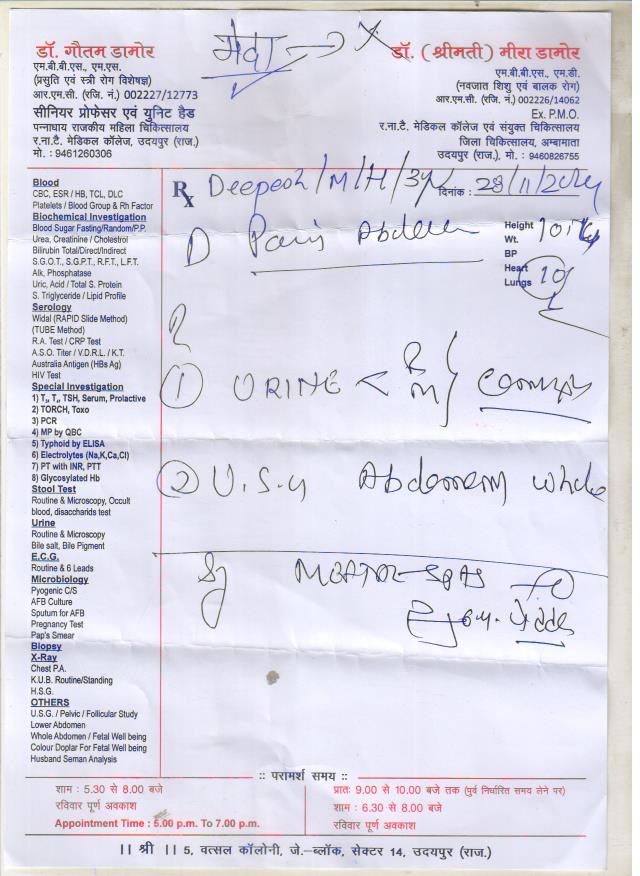 मैदा → X
डॉ. गौतम डामोर
एम.बी.बी.एस., एम.एस.
(प्रसुति एवं स्त्री रोग विशेषज्ञ)
आर.एम.सी. (रजि. नं.) 002227/12773
सीनियर प्रोफेसर एवं युनिट हैड
पन्नाधाय राजकीय महिला चिकित्सालय
र.ना.टै. मेडिकल कॉलेज, उदयपुर (राज.)
मो. : 9461260306
डॉ. (श्रीमती) मीरा डामोर
एम.बी.बी.एस., एम.डी.
(नवजात शिशु एवं बालक रोग)
आर.एम.सी. (रजि. नं.) 002226/14062
Ex. P.M.O.
र.ना.टै. मेडिकल कॉलेज एवं संयुक्त चिकित्सालय
जिला चिकित्सालय, अम्बामाता
उदयपुर (राज.), मो. : 9460826755
Blood
CBC, ESR / HB, TCL, DLC
Platelets / Blood Group & Rh Factor
Biochemical Investigation
Blood Sugar Fasting/Random/P.P.
Urea, Creatinine / Cholestrol
Bilirubin Total/Direct/Indirect
S.G.O.T., S.G.P.T., R.F.T., L.F.T.
Alk, Phosphatase
Uric, Acid / Total S. Protein
S. Triglyceride / Lipid Profile
Serology
Widal (RAPID Slide Method)
(TUBE Method)
R.A. Test / CRP Test
A.S.O. Titer / V.D.R.L. / K.T.
Australia Antigen (HBs Ag)
HIV Test
Special Investigation
1) T₃, T₄, TSH, Serum, Prolactive
2) TORCH, Toxo
3) PCR
4) MP by QBC
5) Typhoid by ELISA
6) Electrolytes (Na,K,Ca,Cl)
7) PT with INR, PTT
8) Glycosylated Hb
Stool Test
Routine & Microscopy, Occult
blood, disaccharids test
Urine
Routine & Microscopy
Bile salt, Bile Pigment
E.C.G.
Routine & 6 Leads
Microbiology
Pyogenic C/S
AFB Culture
Sputum for AFB
Pregnancy Test
Pap's Smear
Biopsy
X-Ray
Chest P.A.
K.U.B. Routine/Standing
H.S.G.
OTHERS
U.S.G. / Pelvic / Follicular Study
Lower Abdomen
Whole Abdomen / Fetal Well being
Colour Doplar For Fetal Well being
Husband Seman Analysis
Rx Deepesh/M/H/3yr दिनांक : 28/11/2024
Pain Abdomen
Height
Wt. 10.1 kg
BP
Heart
Lungs
① URINE < R M
② U.S.G Abdomen whole
:: परामर्श समय ::
शाम : 5.30 से 8.00 बजे
रविवार पूर्ण अवकाश
Appointment Time : 5.00 p.m. To 7.00 p.m.
प्रातः 9.00 से 10.00 बजे तक (पुर्व निर्धारित समय लेने पर)
शाम : 6.30 से 8.00 बजे
रविवार पूर्ण अवकाश
।। श्री ।। 5, वत्सल कॉलोनी, जे.–ब्लॉक, सेक्टर 14, उदयपुर (राज.)